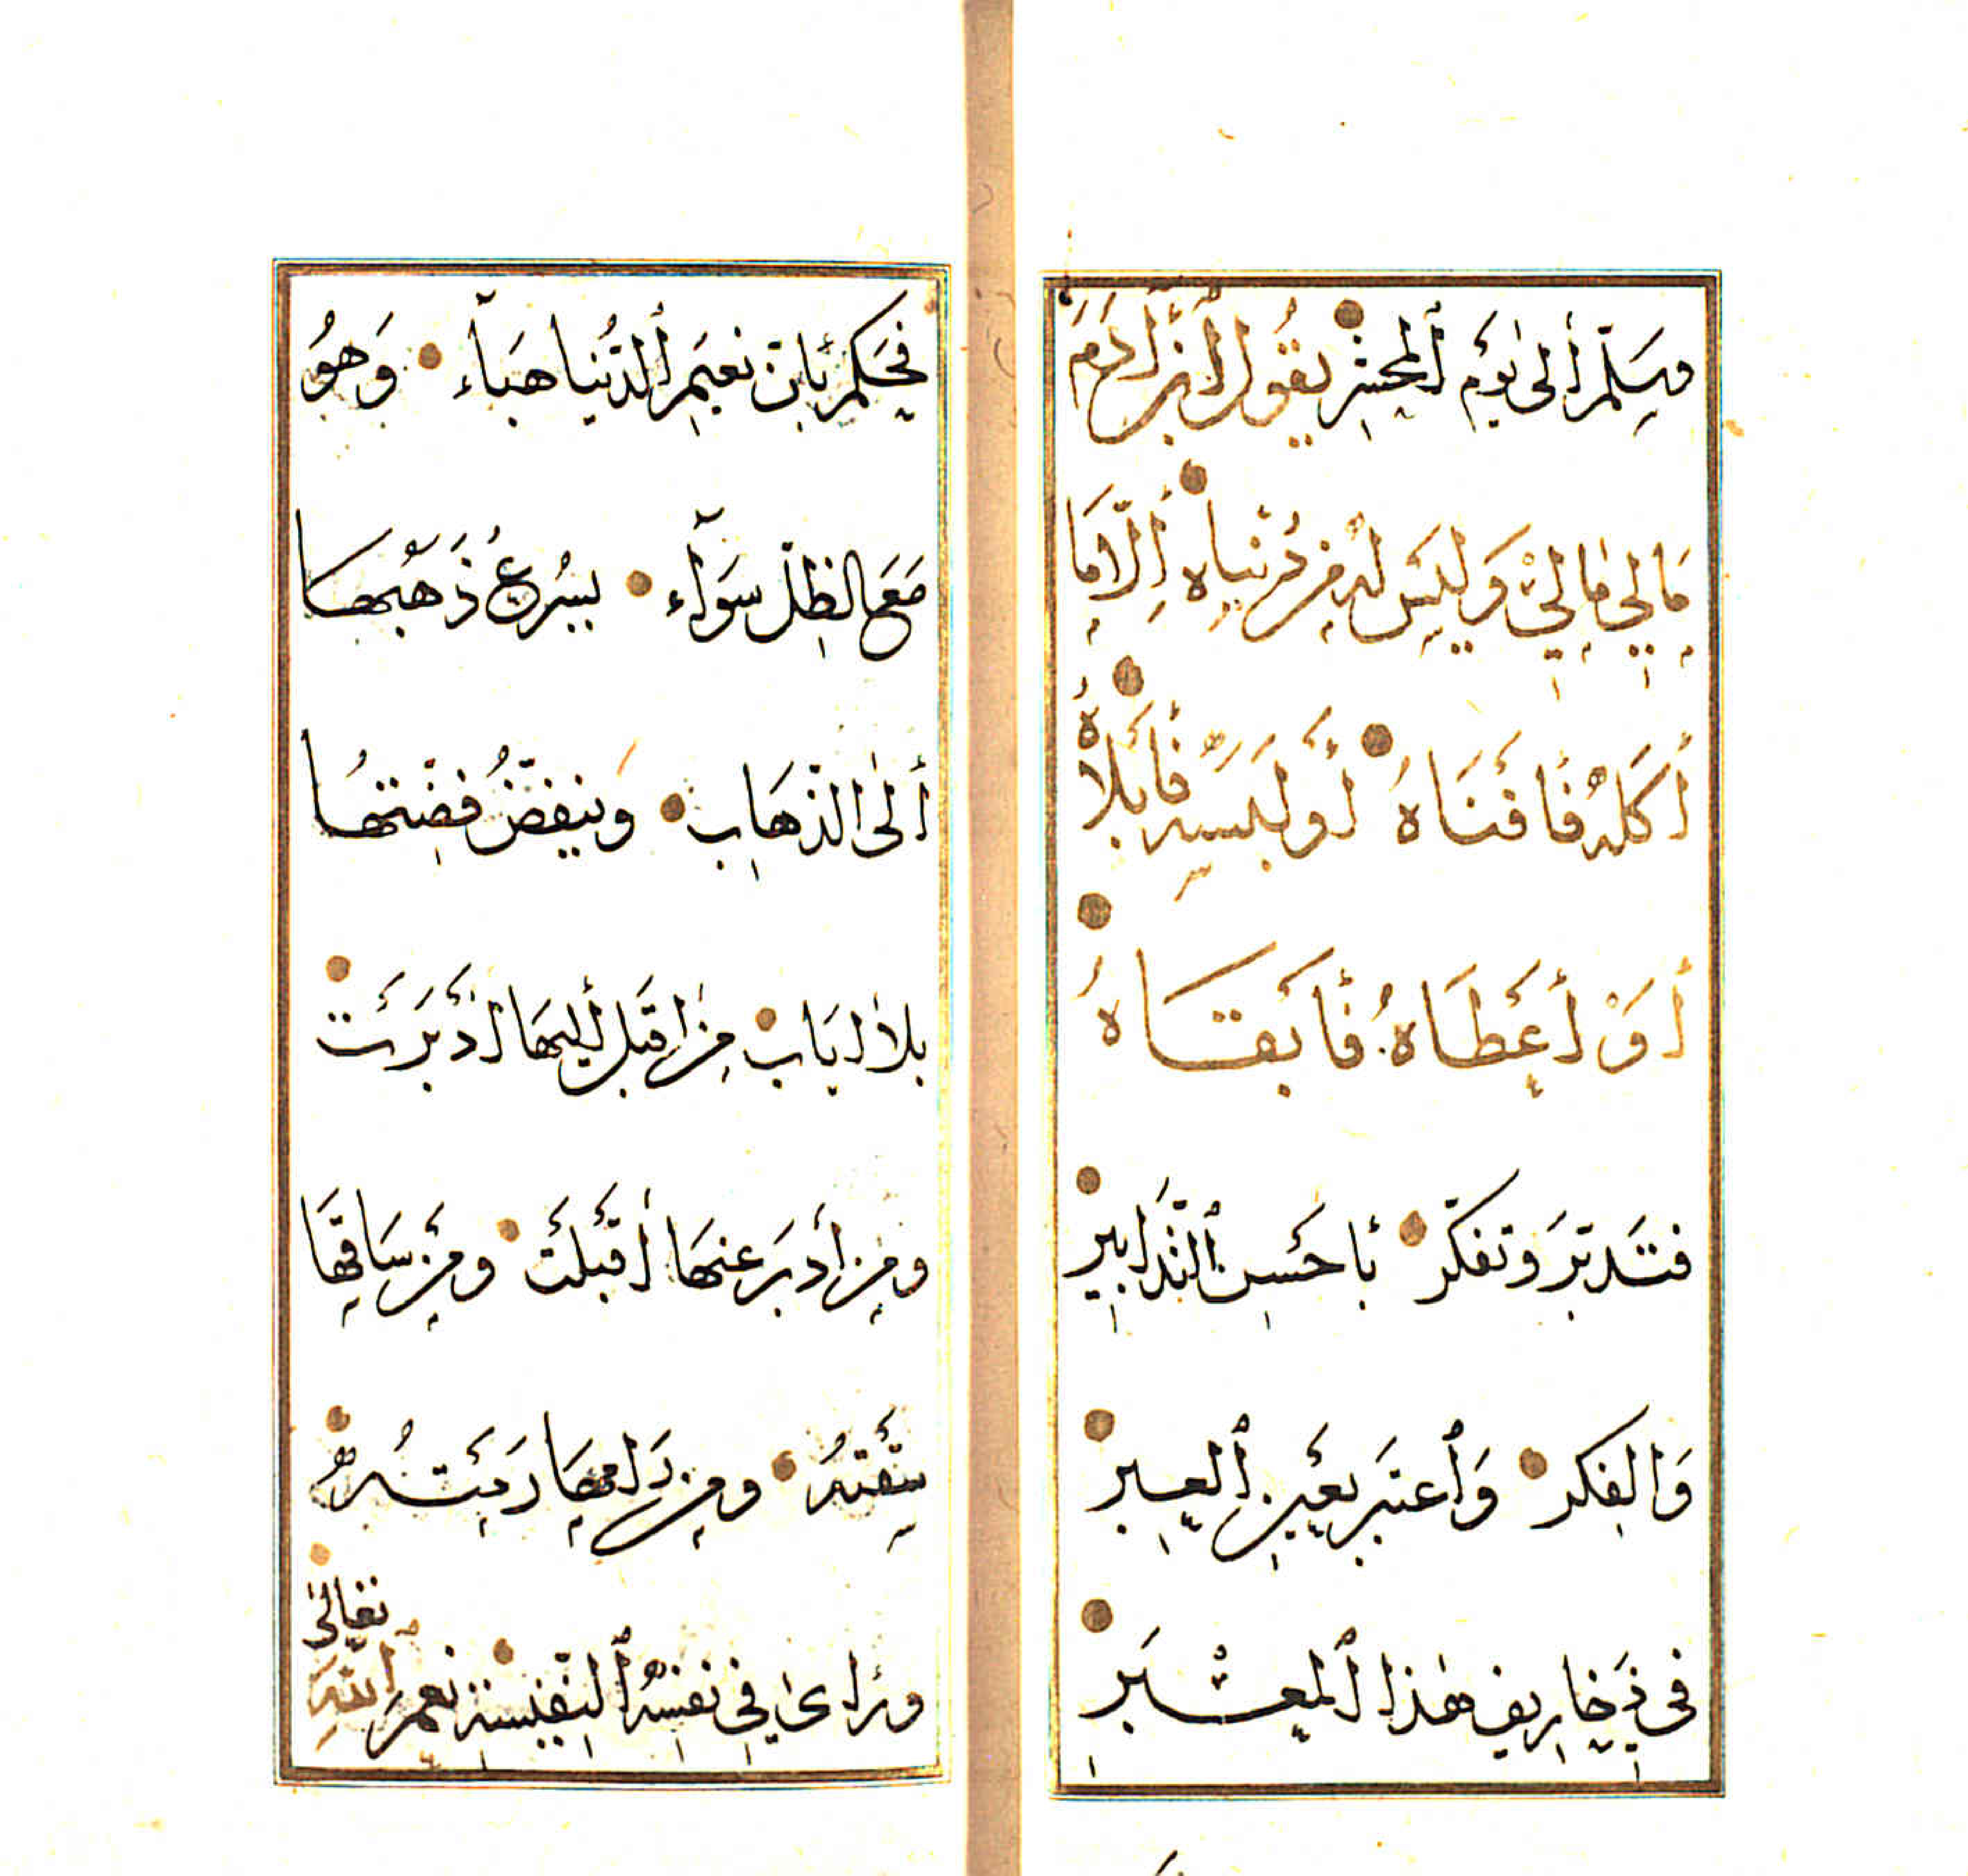 وسلم ألى يوم ٱلمحشر يقول أبن أدم
مالي مالي وليس له من دنياه ألا ما
أكله فأفناه أو لبسه فأبلاه
أو أعطاه فأبقاه
فتدبر وتفكر بأحسن ٱلتدابير
والفكر وٱعتبر بعين ٱلعبر
في هذا ٱلمعبر
فيحكم بأن نعيم ٱلدنيا هباء وهو
مع الظل سواء يسرع ذهبها
ألى الذهاب وينفض فضتها
بلا اياب من اقبل أليها ادبرت
ومن أدبر عنها اقبلت ومن ساقها
سقته ومن رامها رمته
ورأى في نفسه ٱلنفيسة نعم ٱلله تعالى